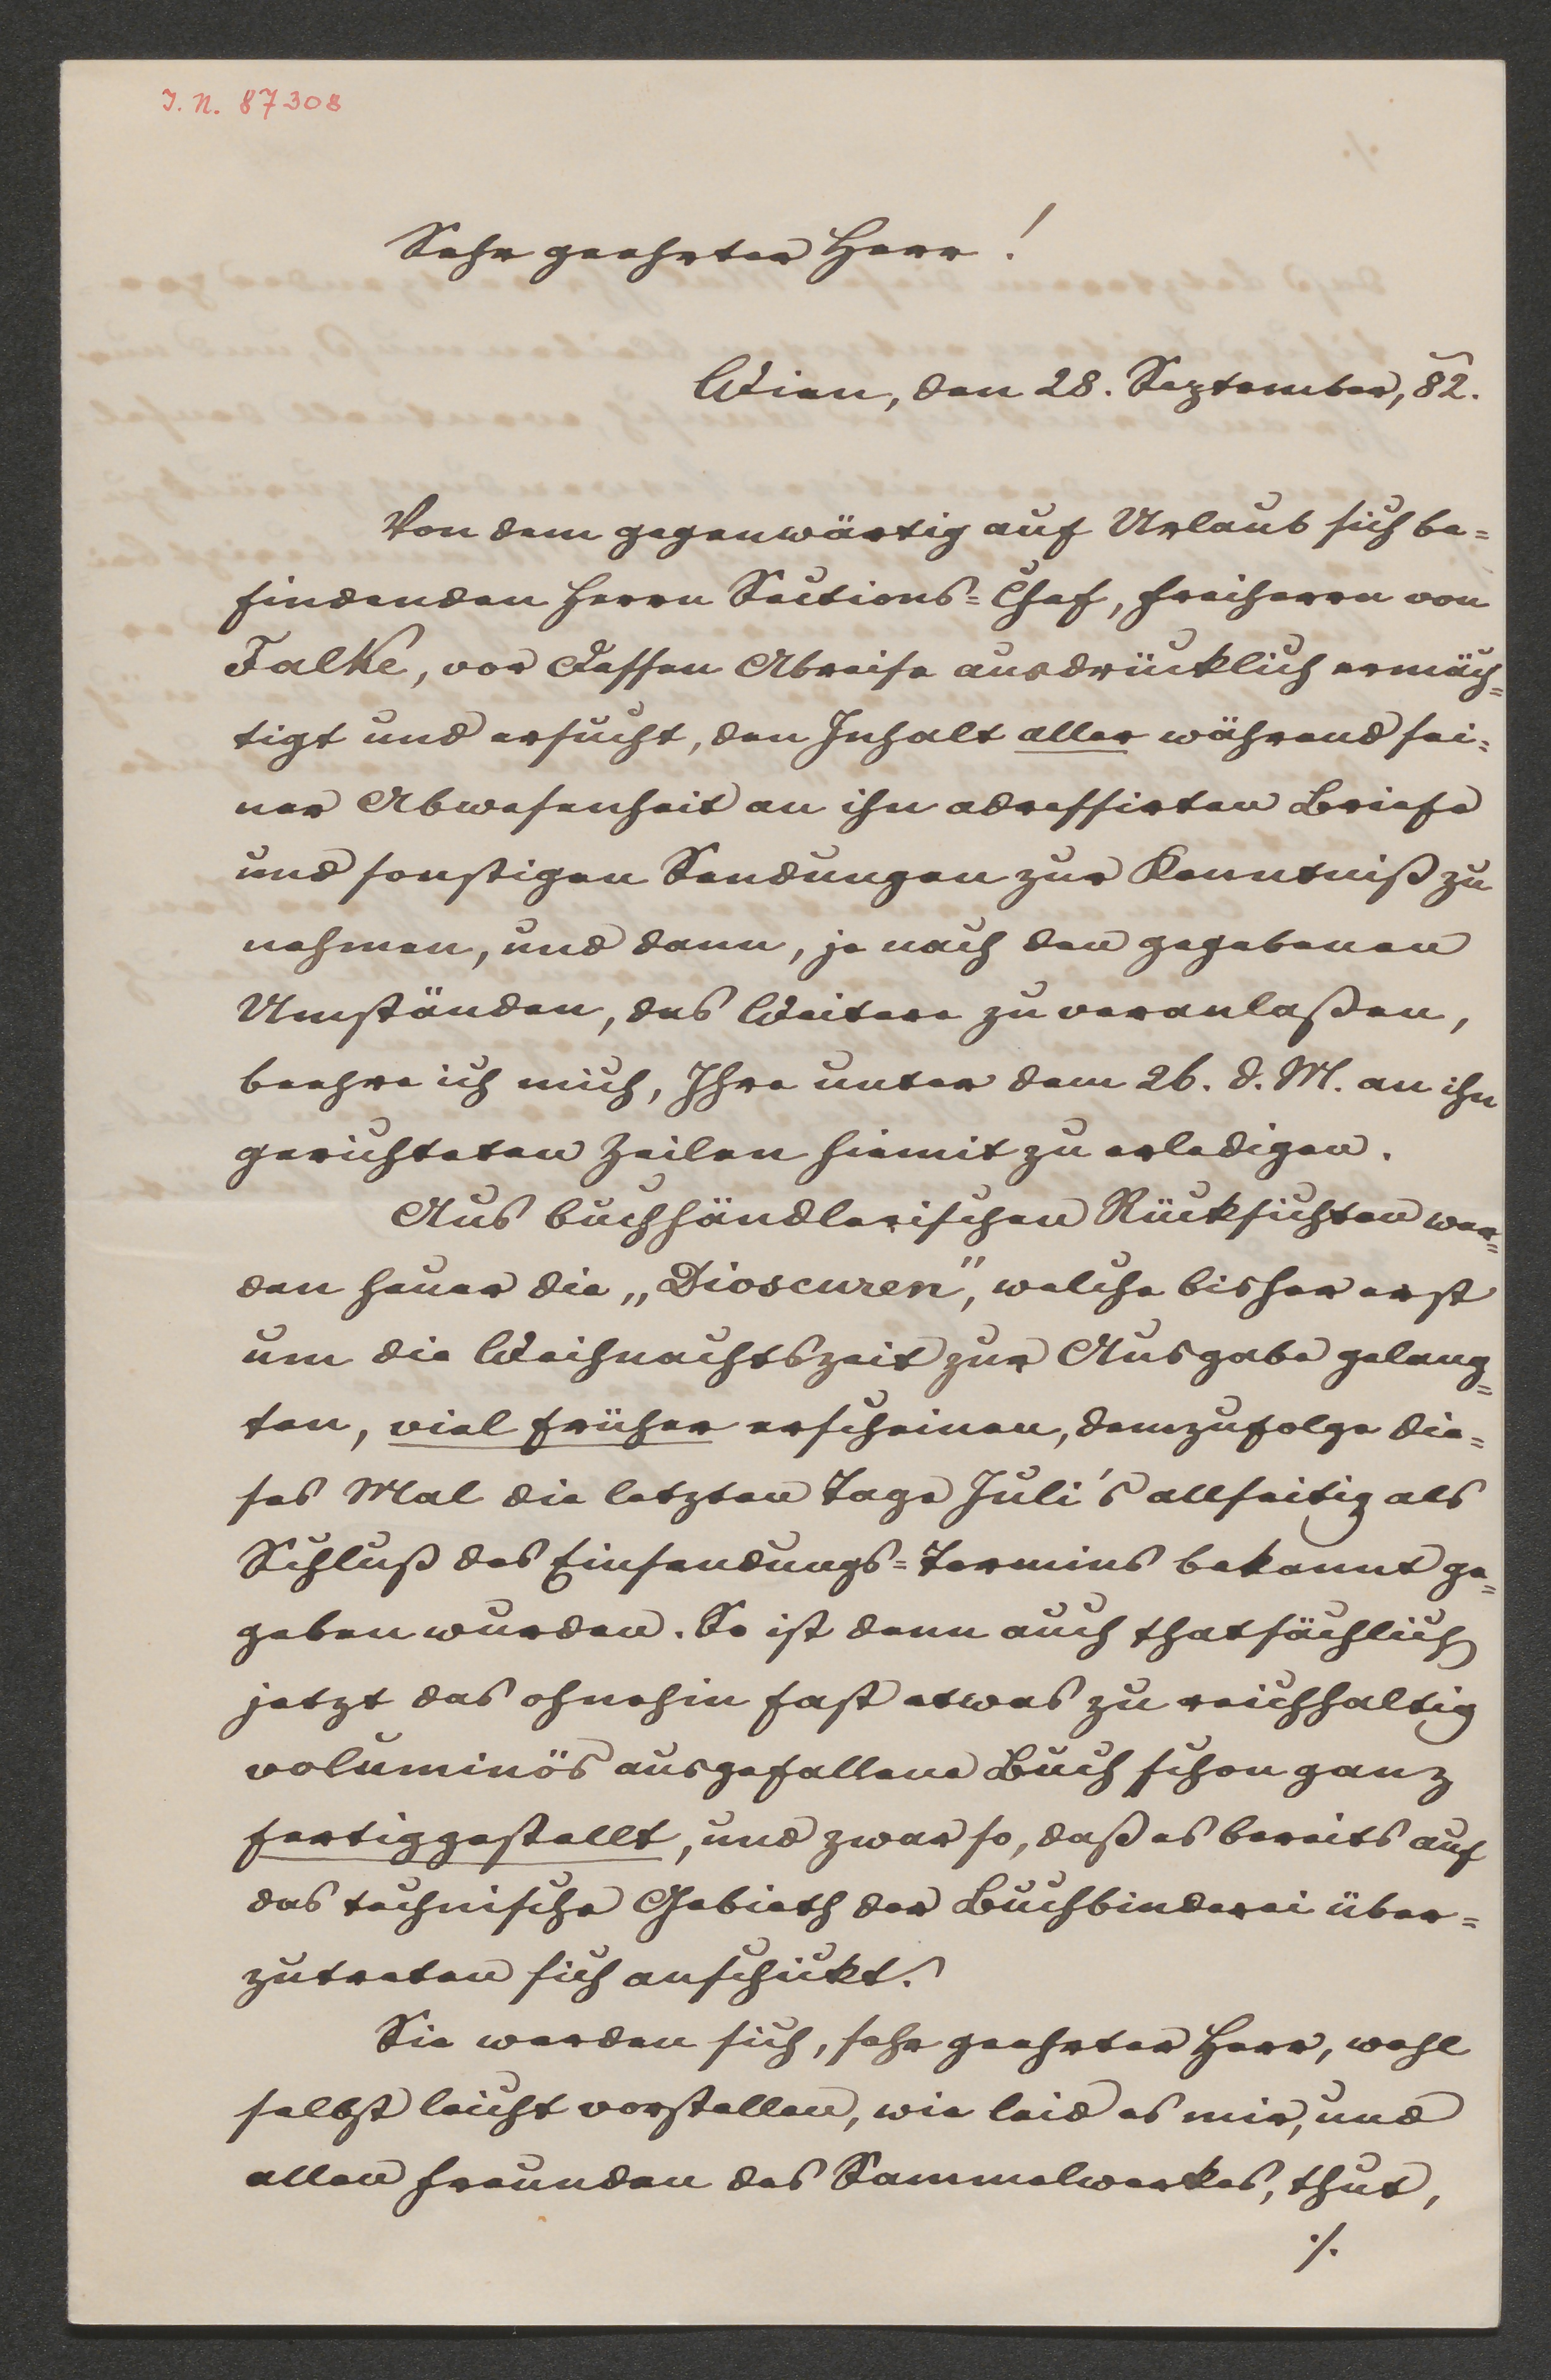 I. N. 87308
Sehr geehrter Herr!
Wien, den 28. September, 82.
Von dem gegenwärtig auf Urlaub sich be=
findenden Herrn Sections=Chef, Freiherrn von
Falke, vor dessen Abreise ausdrücklich ermäch=
tigt und ersucht, den Inhalt aller während sei=
ner Abwesenheit an ihn adressirten Briefe
und sonstigen Sendungen zur Kenntniß zu
nehmen, und dann, je nach den gegebenen
Umständen, das Weitere zu veranlaßen,
beehre ich mich, Ihre unter dem 26. d. M. an ihn
gerichteten Zeilen hiemit zu erledigen.
Aus buchhändlerischen Rücksichten wer=
den heuer die „Dioscuren", welche bisher erst
um die Weihnachtszeit zur Ausgabe gelang=
ten, viel früher erscheinen, demzufolge die=
ses Mal die letzten Tage Juli's allseitig als
Schluß des Einsendungs=Termins bekannt ge=
geben wurden. So ist denn auch thatsächlich
jetzt das ohnehin fast etwas zu reichhaltig
voluminös ausgefallene Buch schon ganz
fertiggestellt, und zwar so, daß es bereits auf
das technische Gebieth der Buchbinderei über=
zutreten sich anschickt.
Sie werden sich, sehr geehrter Herr, wohl
selbst leicht vorstellen, wie leid es mir, und
allen Freunden des Sammelwerkes, thut,
./.